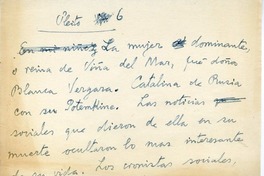 Pleito 6
En mi niñez La mujer dominante,
o reina de Viña del Mar, fué doña
Blanca Vergara. Catalina de Rusia
con su Potemkine. Las noticias
sociales que dieron de ella en su
muerte ocultaron lo mas interesante
de su vida. Los cronistas sociales,